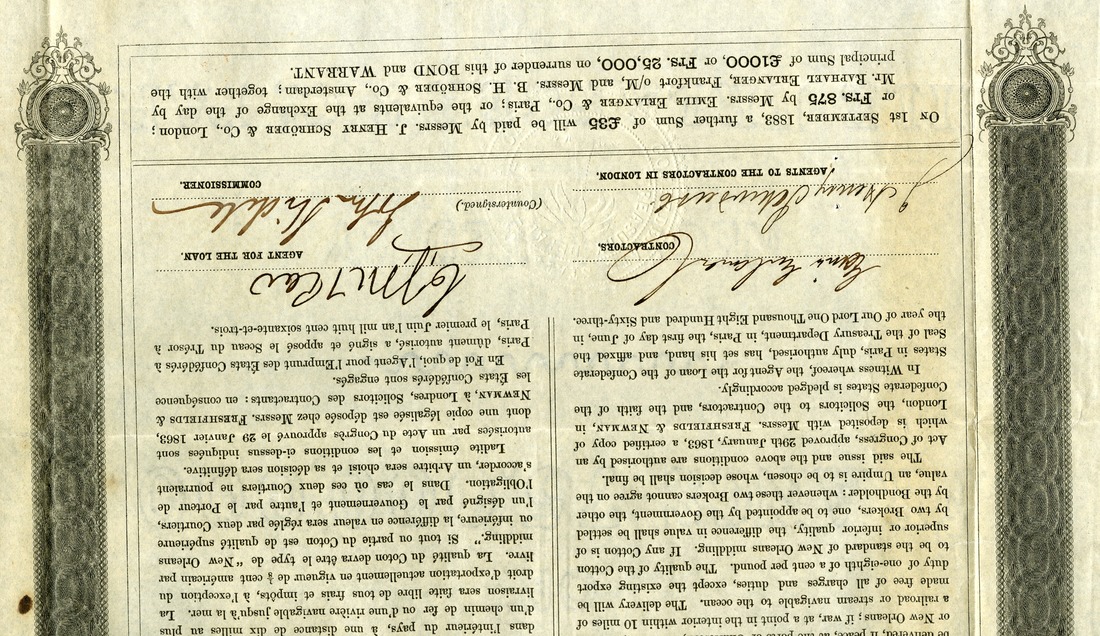 or New Orleans: if war, at a point in the interior within 10 miles of
a railroad or stream navigable to the ocean. The delivery will be
made free of all charges and duties, except the existing export
duty of one-eighth of a cent per pound. The quality of the Cotton
to be the standard of New Orleans middling. If any Cotton is of
superior or inferior quality, the difference in value shall be settled
by two Brokers, one to be appointed by the Government, the other
by the Bondholder: whenever these two Brokers cannot agree on the
value, an Umpire is to be chosen, whose decision shall be final.
The said issue and the above conditions are authorised by an
Act of Congress, approved 29th January, 1863, a certified copy of
which is deposited with Messrs. FRESHFIELDS & NEWMAN, in
London, the Solicitors to the Contractors, and the faith of the
Confederate States is pledged accordingly.
In Witness whereof, the Agent for the Loan of the Confederate
States in Paris, duly authorised, has set his hand, and affixed the
Seal of the Treasury Department, in Paris, the first day of June, in
the year of Our Lord One Thousand Eight Hundred and Sixty-three.
dans l'intérieur du pays, à une distance de dix miles au plus
d'un chemin de fer ou d'une rivière navigable jusqu'à la mer. La
livraison sera faite libre de tous frais et impôts, à l'exception du
droit d'exportation actuellement en vigueur de ⅛ cent américain par
livre. La qualité du Coton devra être le type de "New Orleans
middling." Si tout ou partie du Coton est de qualité supérieure
ou inférieure, la différence en valeur sera réglée par deux Courtiers,
l'un désigné par le Gouvernement et l'autre par le Porteur de
l'Obligation. Dans le cas où ces deux Courtiers ne pourraient
s'accorder, un Arbitre sera choisi et sa décision sera définitive.
Ladite émission et les conditions ci-dessus indiquées sont
autorisées par un Acte du Congrès approuvé le 29 Janvier 1863,
dont une copie légalisée est déposée chez Messrs. FRESHFIELDS &
NEWMAN, à Londres, Solicitors des Contractants: en conséquence
les Etats Confédérés sont engagés.
En Foi de quoi, l'Agent pour l'Emprunt des Etats Confédérés à
Paris, dûment autorisé, a signé et apposé le Sceau du Trésor à
Paris, le premier Juin l'an mil huit cent soixante-et-trois.
CONTRACTORS.
AGENT FOR THE LOAN.
(Countersigned.)
John Slidell
J. Henry Schröder
AGENTS TO THE CONTRACTORS IN LONDON.
COMMISSIONER.
ON 1st SEPTEMBER, 1883, a further Sum of £35 will be paid by Messrs. J. HENRY SCHRÖDER & CO., London;
or Frs. 875 by Messrs. EMILE ERLANGER & CO., Paris; or the equivalents at the Exchange of the day by
Mr. RAPHAEL ERLANGER, Frankfort o/M, and Messrs. B. H. SCHRÖDER & CO., Amsterdam; together with the
principal Sum of £1000, or Frs. 25,000, on surrender of this BOND and WARRANT.